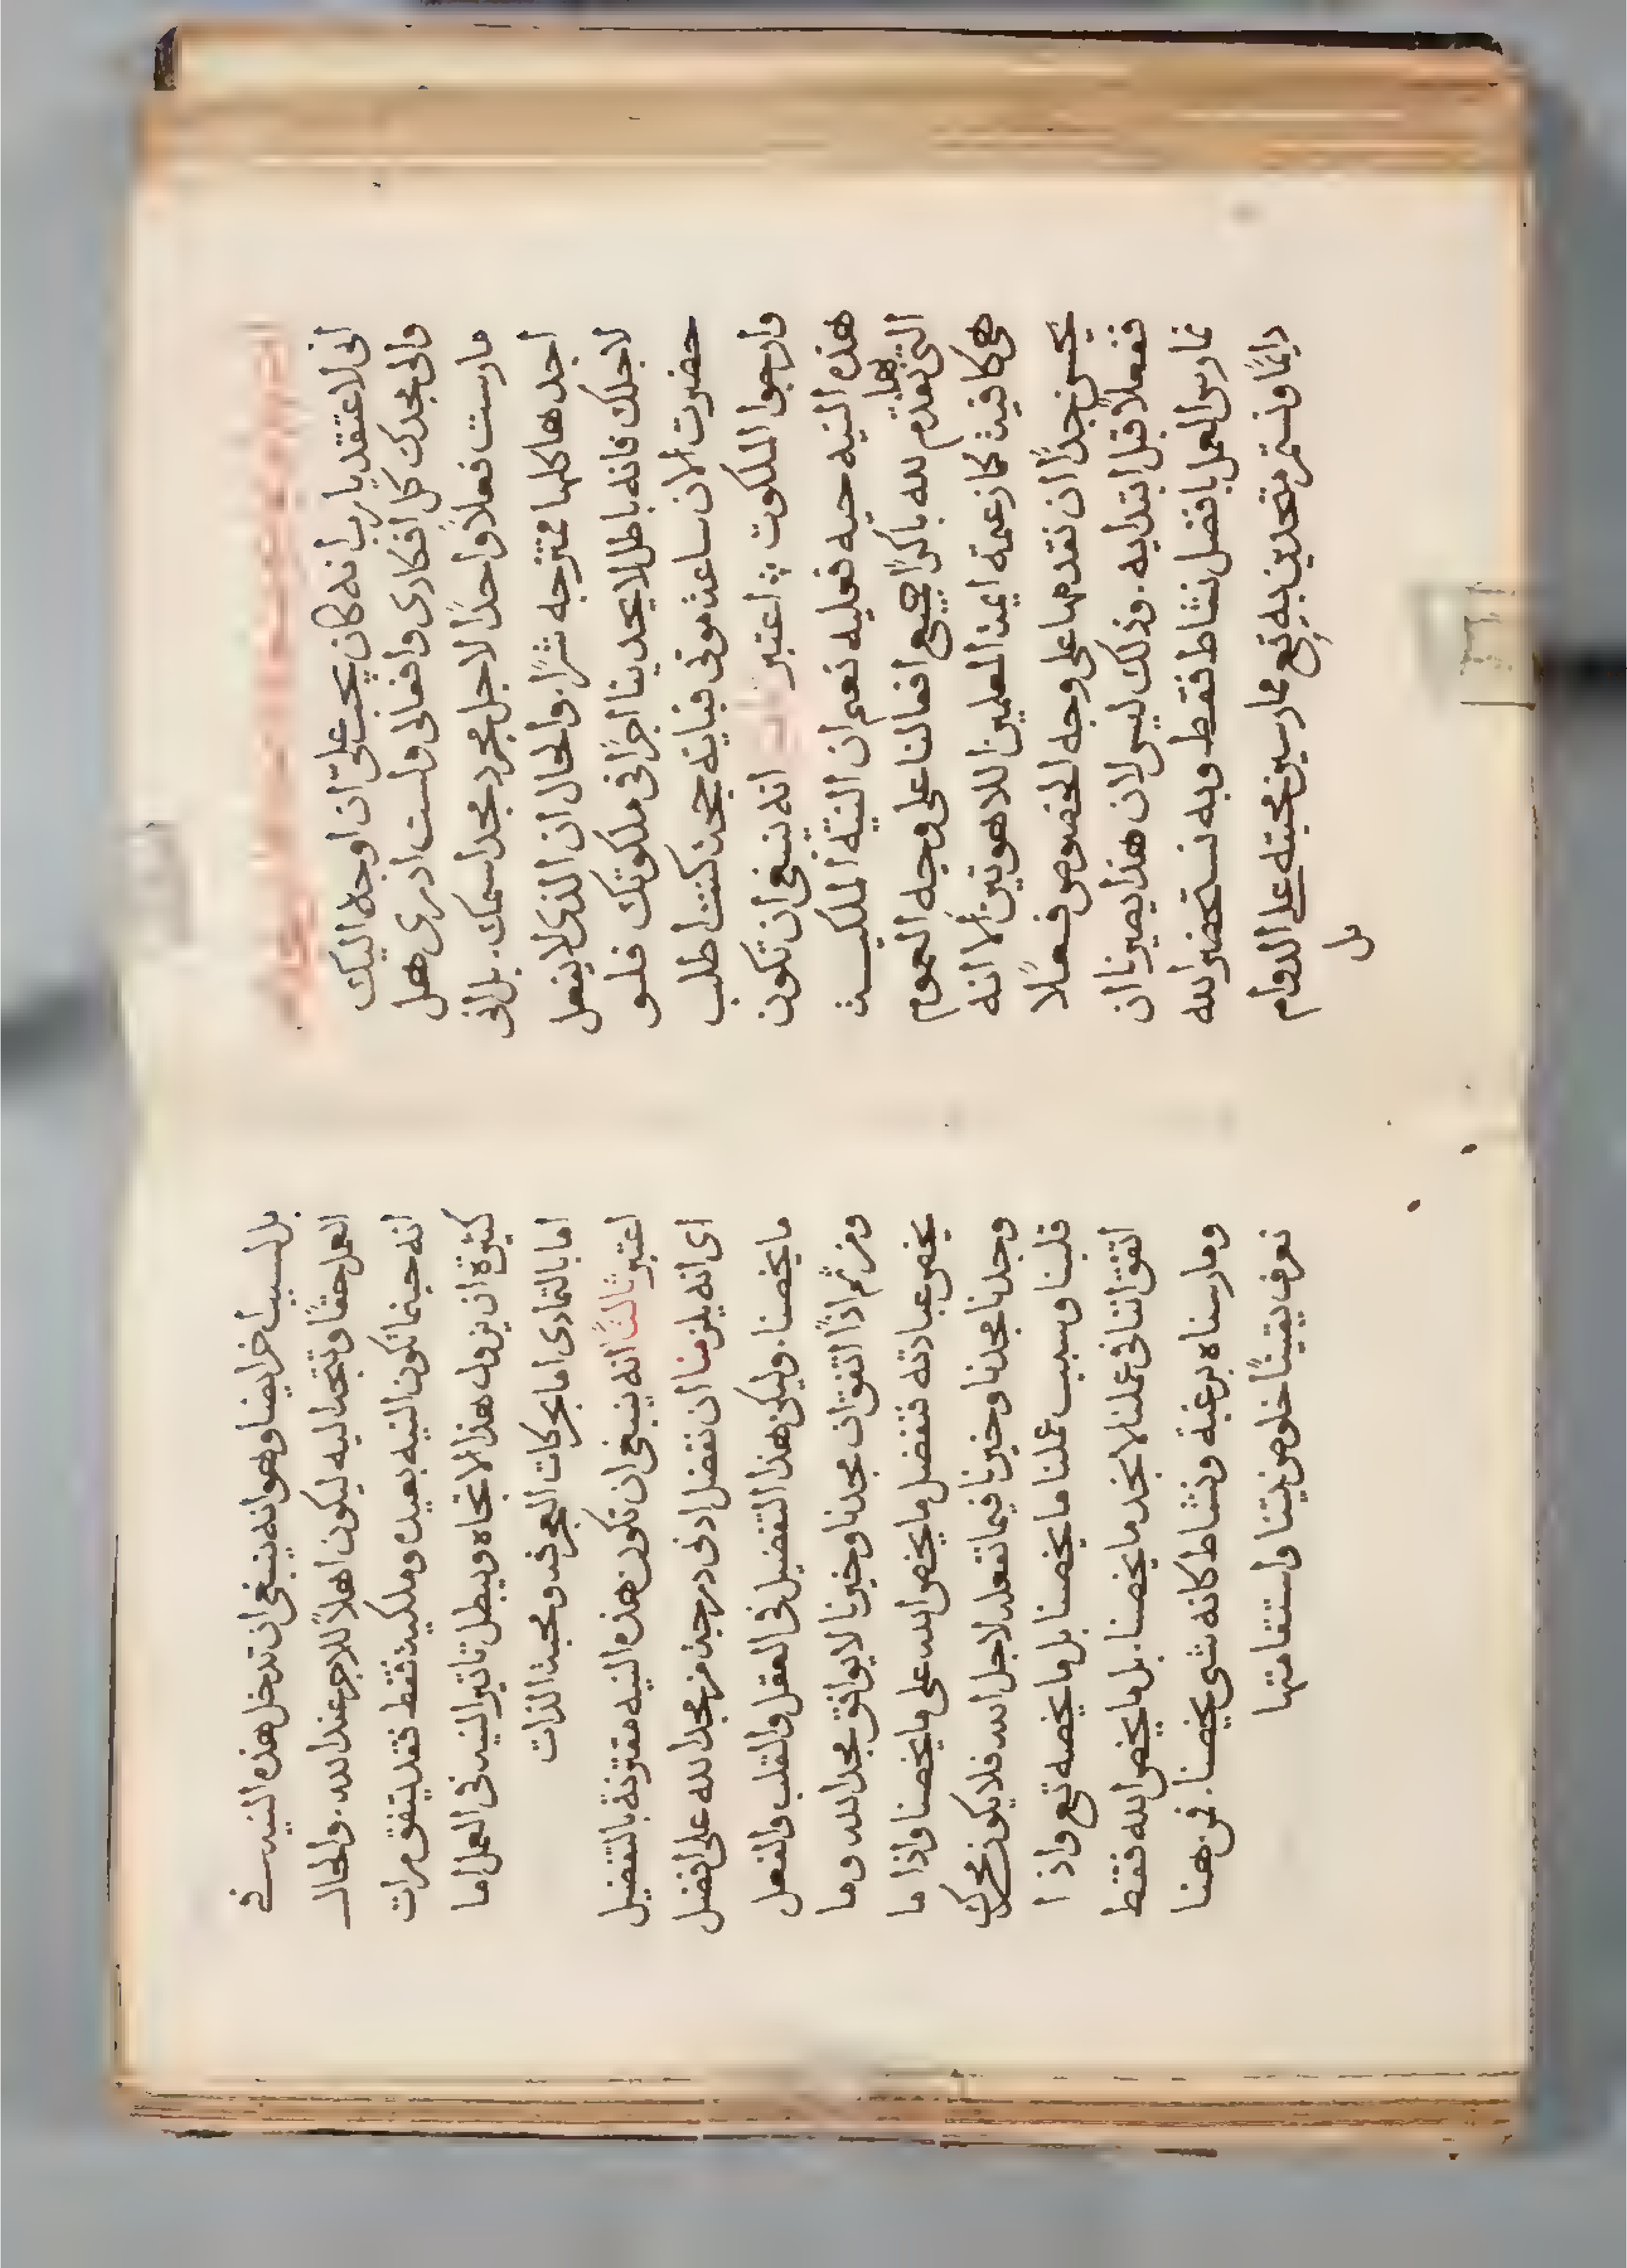 انى لاعتقد يا رب انه كان يجب علىّ ان اوجه اليك
والى مجدك كل افكارى وافعالى ولست ادرى هل
مارست فعلاً واحدًا لاجل مجرد مجد اسمك. بل انى
اجدها كلها ممتزجه شرًا. والحال ان الذى لا يفعل
لاجلك فانه باطل لا يجدينا اجرًا فى ملكوتك فلو
حضرت الان ساعة موتى فباية حجة كنت اطلب
وارجوا الملكوت اعتبر انه ينبغى ان تكون
هذه النيه حيه فعليه نعم ان النيّة الملكيــة
التى نقدم بها لله باكرًا جميع افعالنا على وجه العموم
هى كافية كما زعمة ايمة المعلمين اللاهوتيين الا انه
يحسن جدًا ان نقدمها على وجه الخصوص فعلًا
ففعلًا قبل ابتدايه. وذلك ليس لان هذا يصيرنا ان
نمارس العمل بافضل نشاط فقط وبه نستحضر الله
دايمًا ونستمر متحدين به تع ممارسين محبته على الدوام
بل
بل لسبب اخر ايضا وهو انه ينبغى ان تدخل هذه النيه فى
العمل حقًا وتتجه اليه ليكون اهلاً للاجر عند الله. والحال
انه حينما تكون النيه بعيده وملكية فقط فقد يتفق مرات
كثيرة ان يزول هذا الاتجاه ويبطل تاثير النيه فى العمل اما
اما بالتمادى اما بحركات العجرفه ومحبة الذات
اعتبر ثالثًا انه ينبغى ان تكون هذه النيه مقترنة بالتفضيل
اى انه يلزمنا ان نفضل ادنى درجة من مجد الله على افضل
ما يخصنا. وليكن هذا التفضيل فى العقل والقلب والفعل
ومن ثم اذًا اتفق ان مجدنا وخيرنا لا يوافق مجد الله وما
يخص عبادته فنفضل ما يخص الله على ما يخصنا واذا ما
وجدنا مجدنا وخيرنا فيما نفعله لاجل الله فلا يكون محرك
قلبنا وسبب عملنا ما يخصنا بل ما يخصه تع واذا
اتفق اننا فى عملنا لا نجد ما يخصنا. بل ما يخص الله فقط
ومارسناه برغبة ونشاط كانه شى يخصنا. فمن هنا
نعرف يقينًا خلوص نيتنا واستقامتها